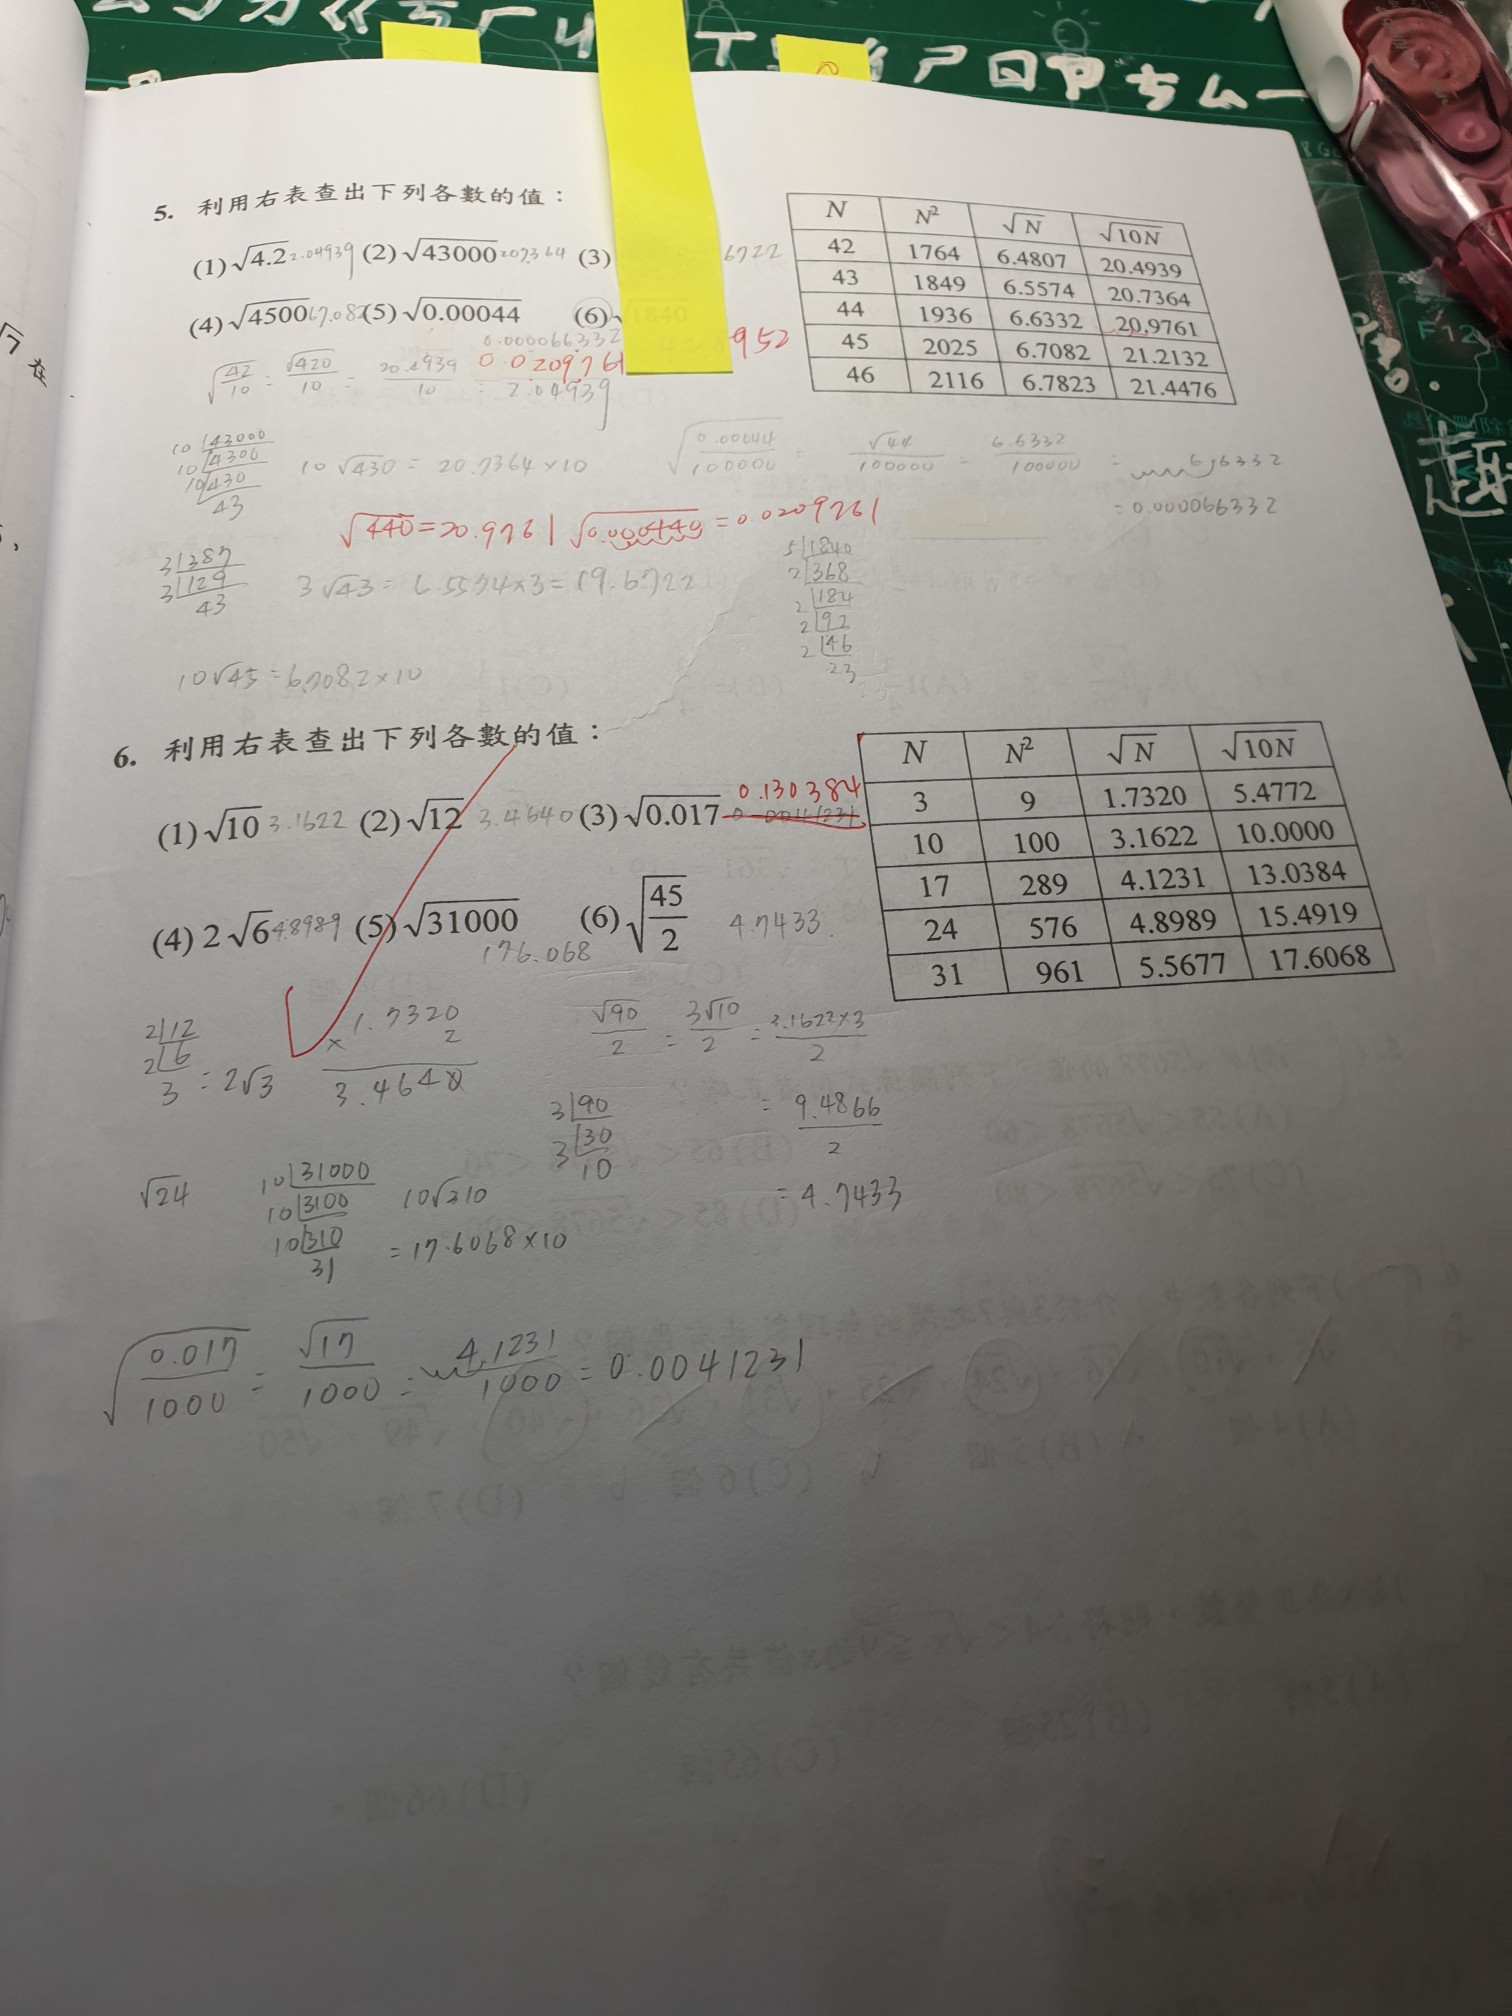 5. 利用右表查出下列各數的值：
(1) √4.2 2.04939 (2) √43000 207.364 (3) 6722
(4) √4500 67.082 (5) √0.00044 (6) √1840
0.000066332
0.0209761 952
N N² √N √10N
42 1764 6.4807 20.4939
43 1849 6.5574 20.7364
44 1936 6.6332 20.9761
45 2025 6.7082 21.2132
46 2116 6.7823 21.4476
√(42/10) = √420/10 = 20.4939/10 = 2.04939
10 43000
10 4300
10 430
43
10√430 = 20.7364×10
√(0.00044/100000) = √44/100000 = 6.6332/100000 = 6.6332
= 0.000066332
√440=20.9761 √0.000440=0.0209761
3 387
3 129
43
3√43 = 6.5574×3=19.6722
5 1840
2 368
2 184
2 92
2 46
23
10√45=6.7082×10
6. 利用右表查出下列各數的值：
(1) √10 3.1622 (2) √12 3.4640 (3) √0.017 0.0041231 0.130384
(4) 2√6 4.8989 (5) √31000 176.068 (6) √(45/2) 4.7433
N N² √N √10N
3 9 1.7320 5.4772
10 100 3.1622 10.0000
17 289 4.1231 13.0384
24 576 4.8989 15.4919
31 961 5.5677 17.6068
2 12
2 6
3 = 2√3
1.7320
× 2
3.4640
√90/2 = 3√10/2 = 3.1622×3/2
= 9.4866/2
= 4.7433
3 90
3 30
10
√24
10 31000
10 3100
10 310
31
10√310
= 17.6068×10
√(0.017/1000) = √17/1000 = 4.1231/1000 = 0.0041231
F12